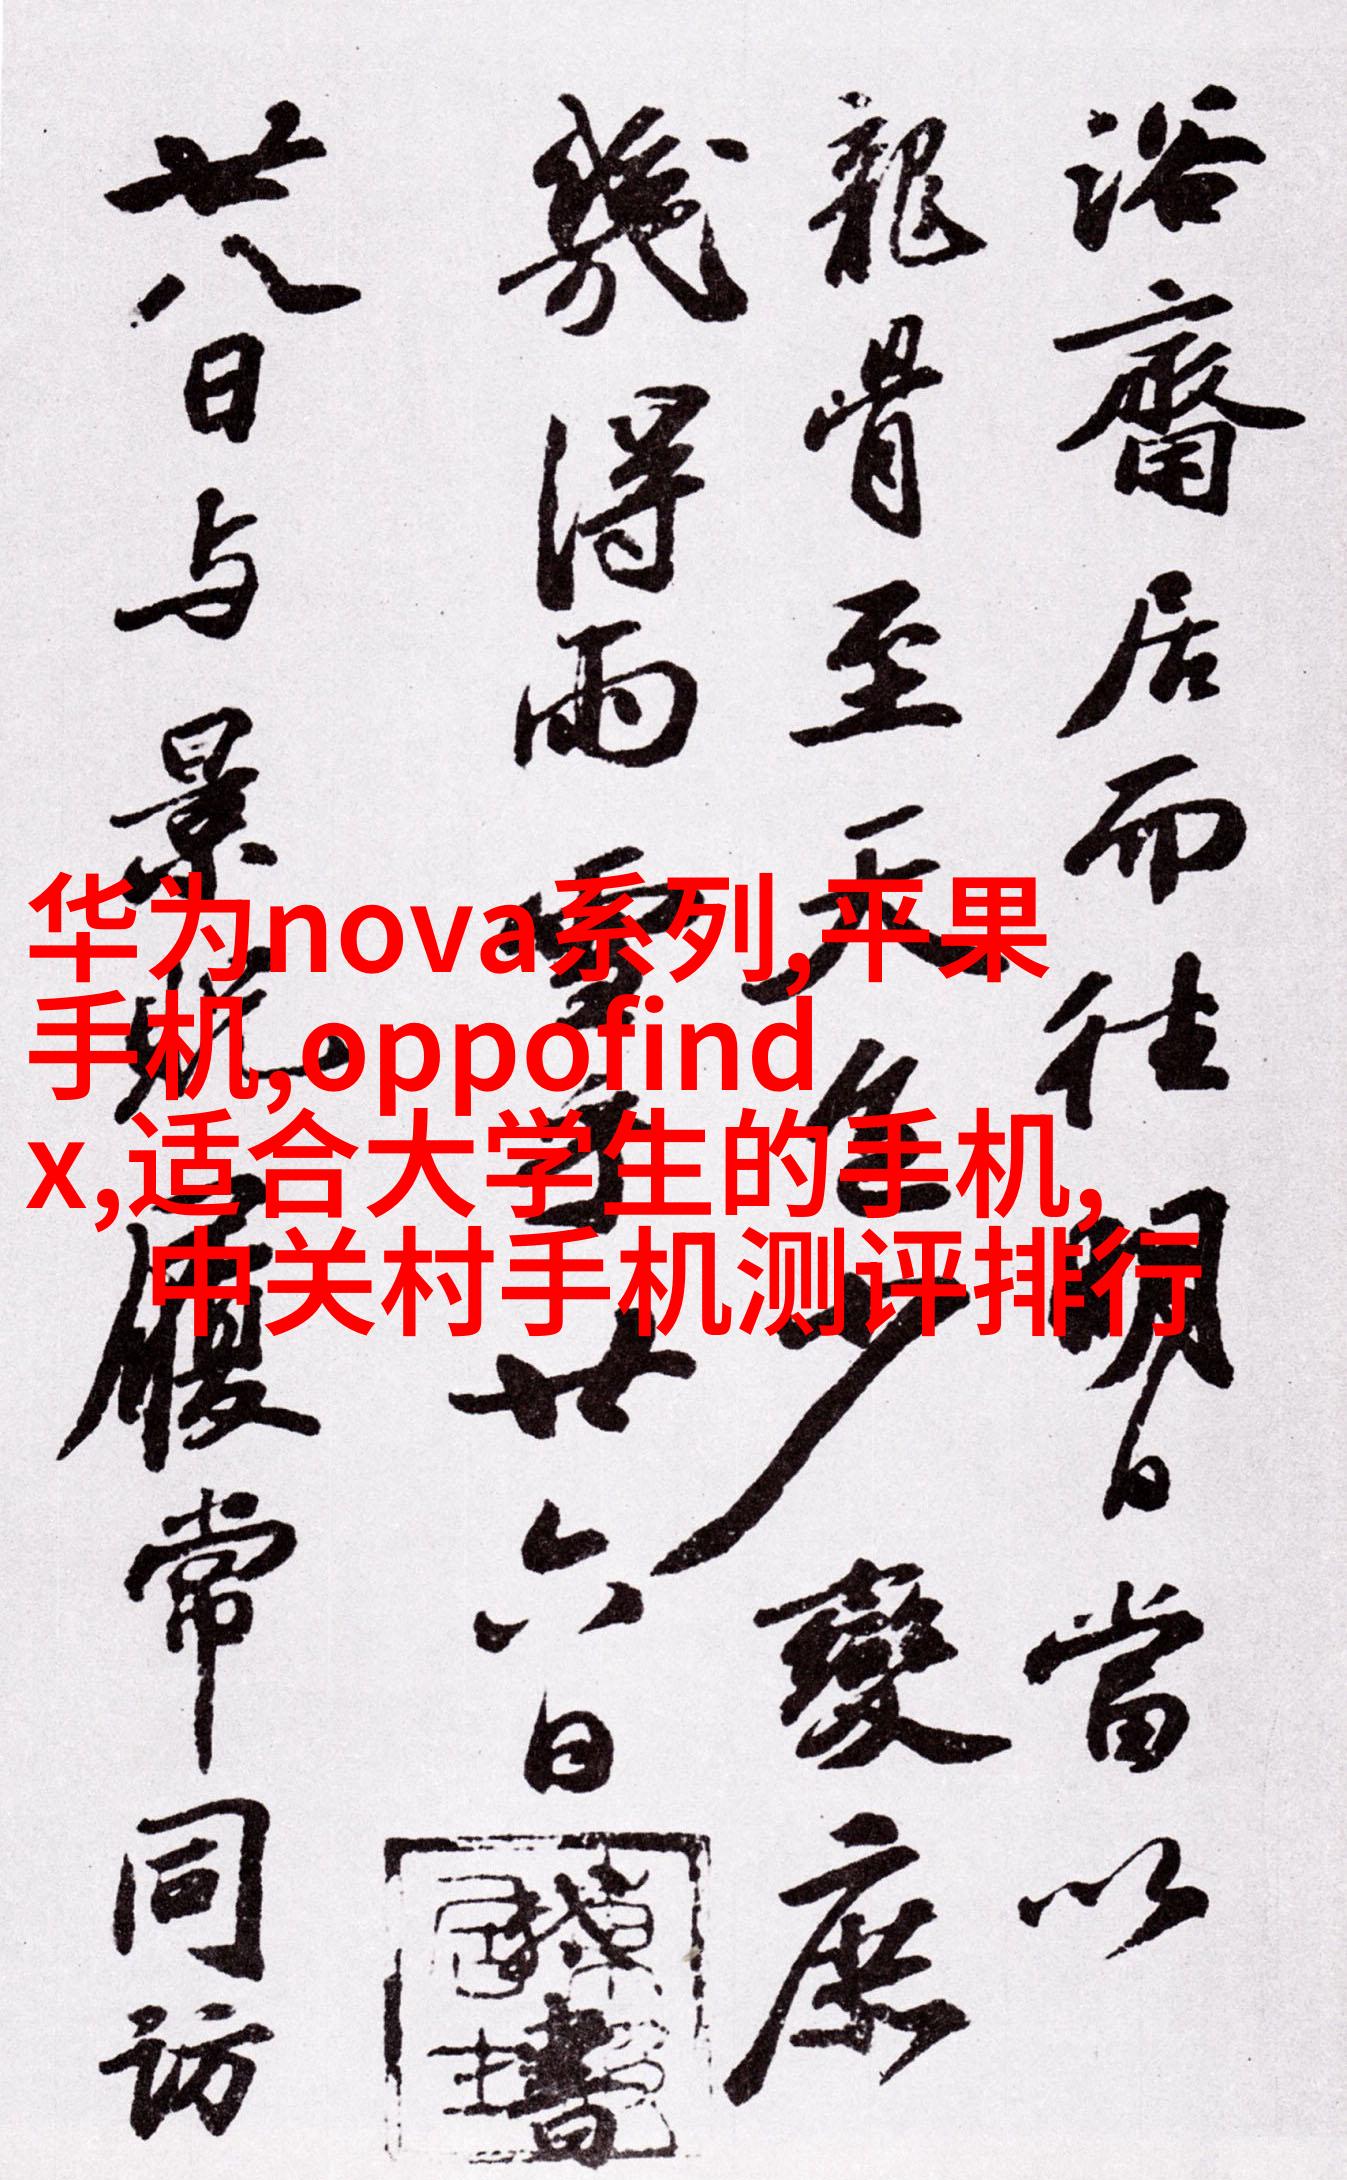 浴齋居而往明日當以
龍骨至天色少變庶
幾得雨雪乎廿六日
書
廿八日与景貺履常同訪
华为nova系列,平果
手机,oppofind
x,适合大学生的手机,
中关村手机测评排行